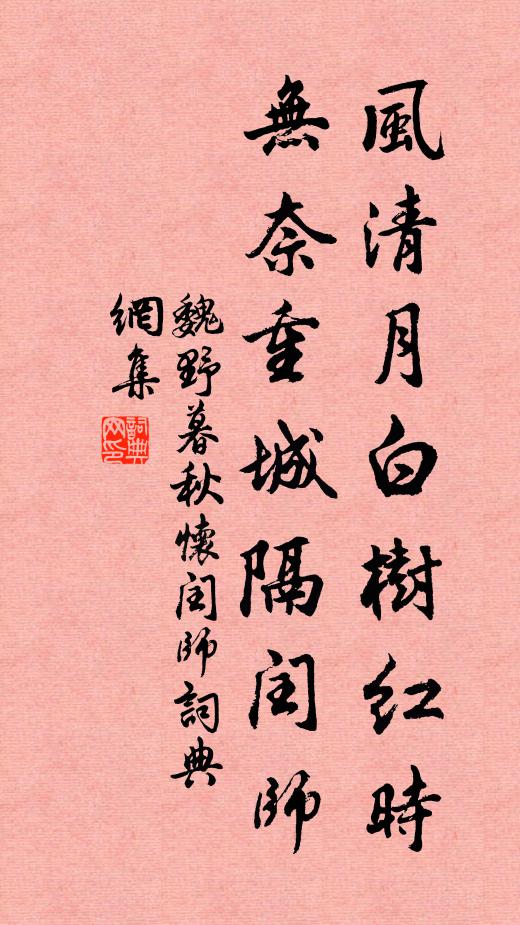 風清月白樹紅時
無奈重城隔閏師
魏野暮秋懷閏師詞典
網集
詞典网印